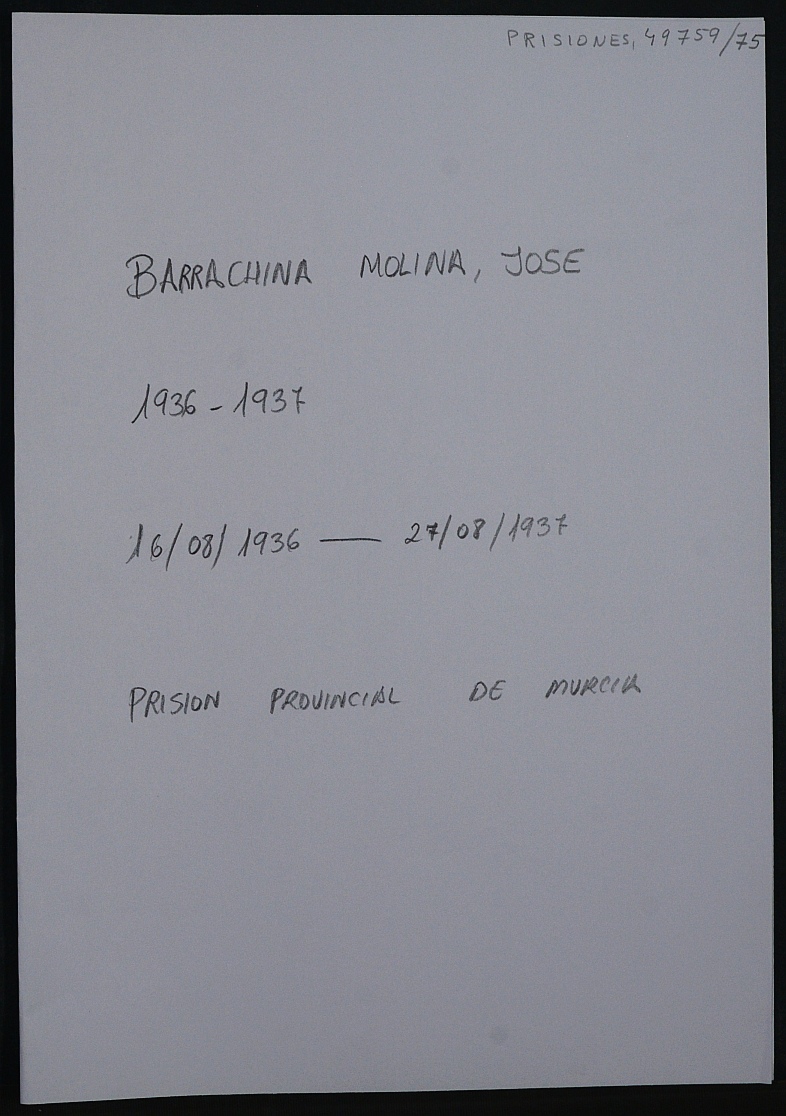 PRISIONES, 49759/75
BARRACHINA MOLINA, JOSE
1936 - 1937
16/08/1936 — 27/08/1937
PRISION PROVINCIAL DE MURCIA